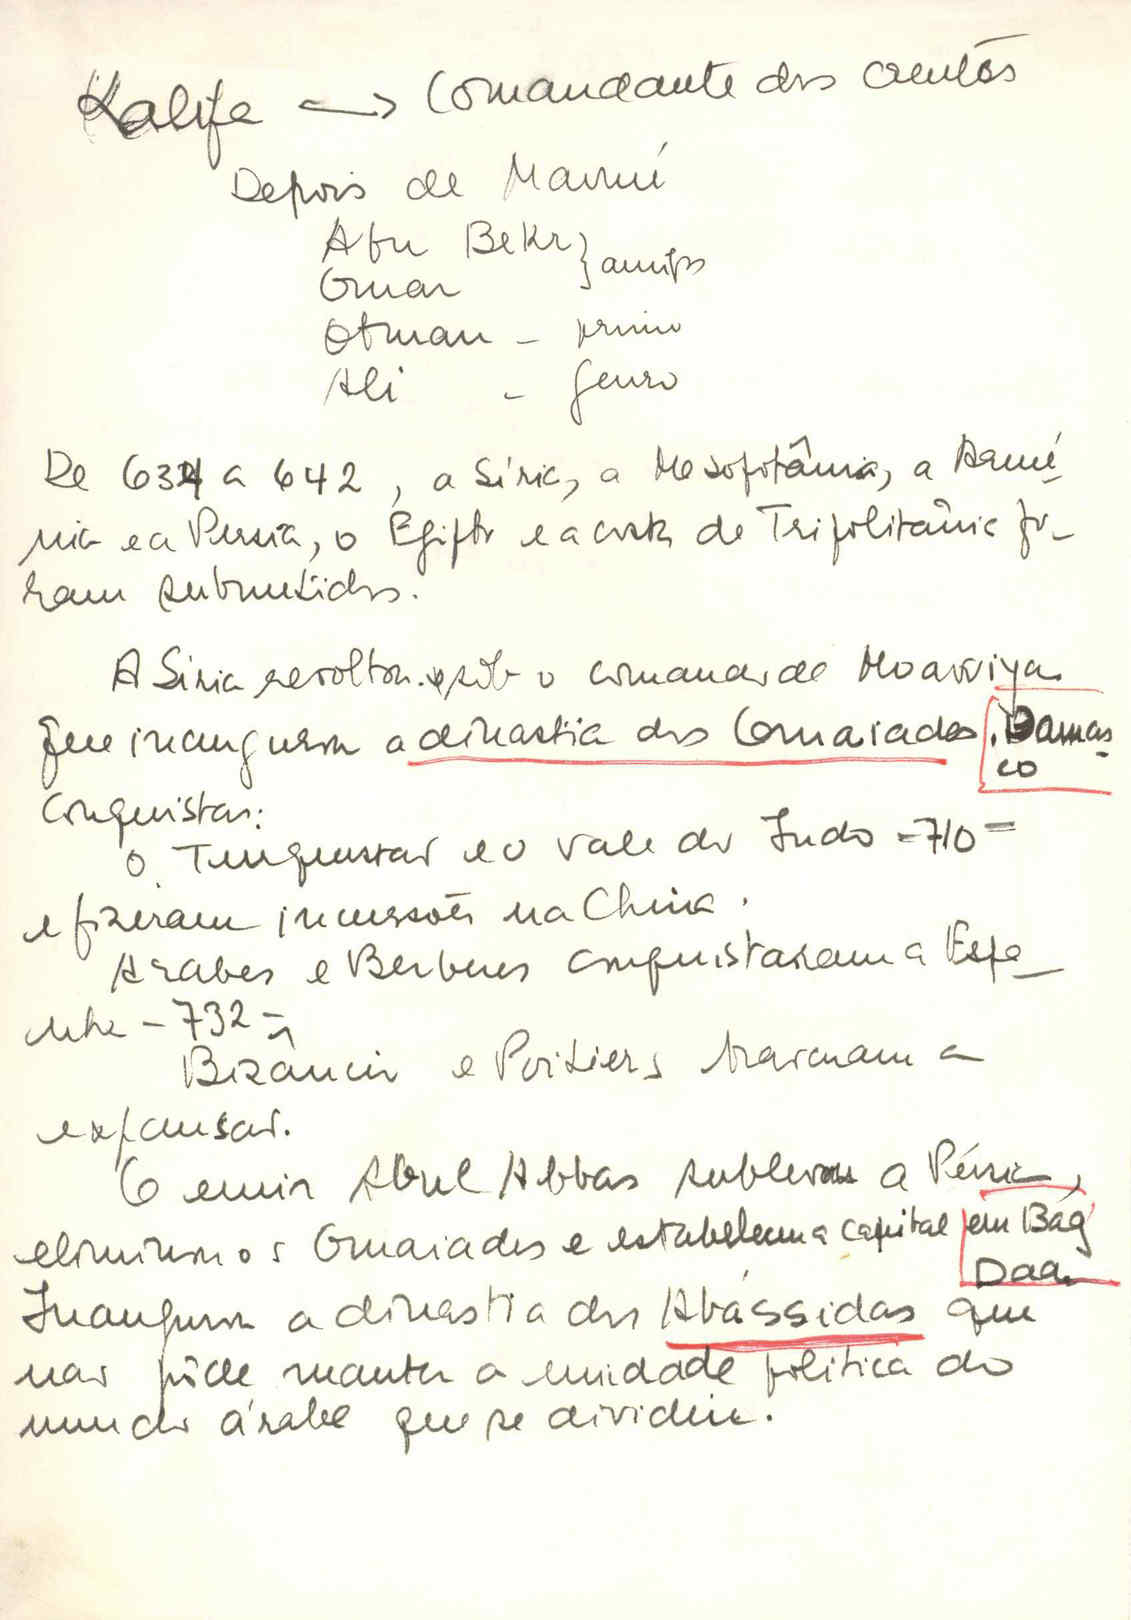 Kalifa → Comandante dos crentes
Depois de Maomé
Abu Bekr } amigos
Omar
Otman - primo
Ali - genro
De 634 a 642, a Síria, a Mesopotâmia, a Armé-
nia e a Persia, o Egipto e a costa de Tripolitânia fo-
ram submetidos.
A Siria revoltou-se sob o comando de Moawiya
que inaugurou a dinastia dos Omaiadas. Damas-
co
Conquistas:
o Turquestão e o vale do Indo -710-
e fizeram incursões na China.
Arabes e Berberes conquistaram a Espa-
nha - 732 -
Bizâncio e Poitiers travaram a
expansão.
O emir Abul Abbas sublevou a Pérsia,
eliminou os Omaiadas e estabeleceu a capital em Bag
Daa
Inaugurou a dinastia dos Abássidas que
não pôde manter a unidade politica do
mundo árabe que se dividiu.